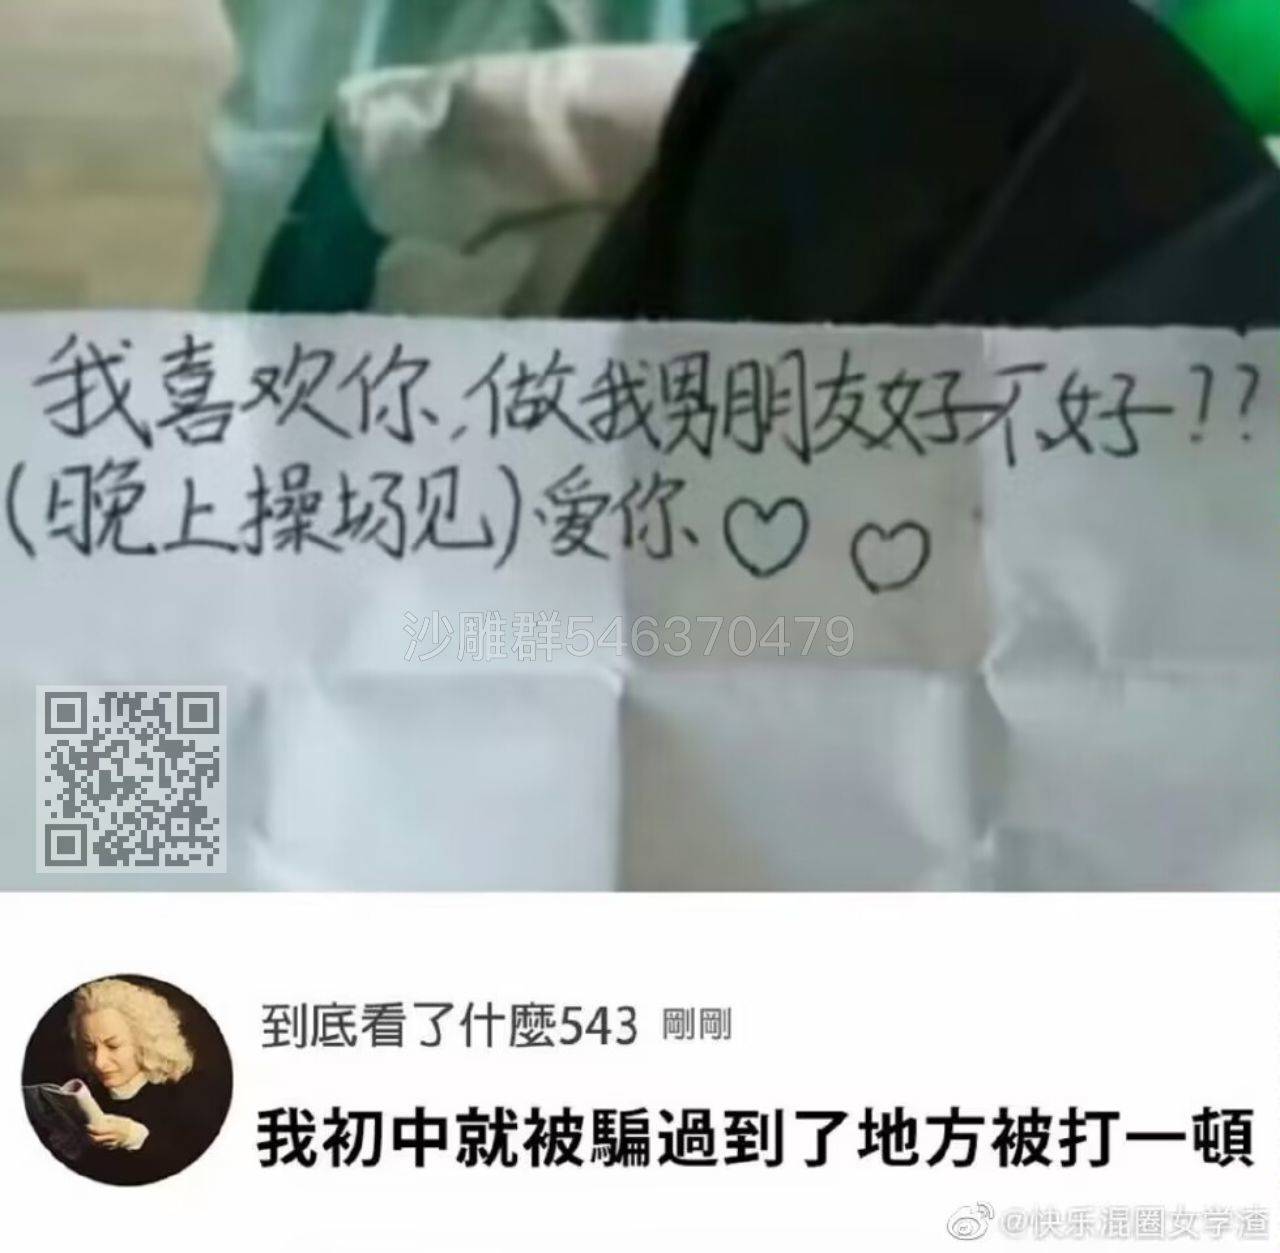 我喜欢你,做我男朋友好不好??
(晚上操场见)爱你
沙雕群546370479
到底看了什麼543 剛剛
我初中就被騙過到了地方被打一頓
@快乐混圈女学渣